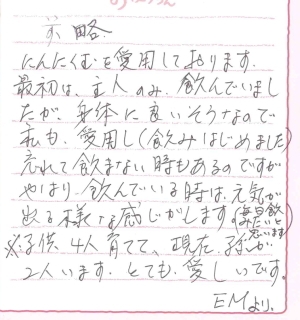 前略
にんにくむを愛用して おります。
最初は、主人のみ、飲んでいまし
たが、身体に良いそうなので
私も、愛用し(飲みはじめました)
忘れて飲まない時もあるのですが
やはり 飲んでいる時は、元気が
出る様な感じがします。(毎日飲みたいと思います)
※子供 4人育てて、現在、孫が
2人います。とても、愛しいです。
EMより。